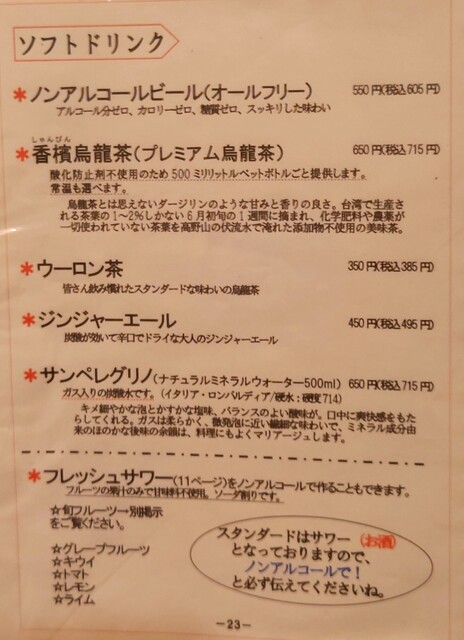 ソフトドリンク
*ノンアルコールビール(オールフリー) 550円(税込605円)
アルコール分ゼロ、カロリーゼロ、糖質ゼロ、スッキリした味わい
しゃんぴん
*香檳烏龍茶(プレミアム烏龍茶) 650円(税込715円)
酸化防止剤不使用のため500ミリリットルペットボトルごと提供します。
常温も選べます。
烏龍茶とは思えないダージリンのような甘みと香りの良さ。台湾で生産さ
れる茶葉の1~2%しかない6月初旬の1週間に摘まれ、化学肥料や農薬が
一切使われていない茶葉を高野山の伏流水で淹れた添加物不使用の美味茶。
*ウーロン茶 350円(税込385円)
皆さん飲み慣れたスタンダードな味わいの烏龍茶
*ジンジャーエール 450円(税込495円)
炭酸が効いて辛口でドライな大人のジンジャーエール
*サンペレグリノ(ナチュラルミネラルウォーター500ml) 650円(税込715円)
ガス入りの炭酸水です。(イタリア・ロンバルディア/硬水:硬度714)
キメ細やかな泡とかすかな塩味、バランスのよい酸味が、口中に爽快感をもた
らしてくれる。ガスは柔らかく、微発泡に近い繊細な味わいで、ミネラル成分由
来のほのかな後味の余韻は、料理にもよくマリアージュします。
*フレッシュサワー(11ページ)をノンアルコールで作ることもできます。
フルーツの果汁のみで甘味料不使用。ソーダ割りです。
☆旬フルーツ→別掲示
をご覧ください。
☆グレープフルーツ
☆キウイ
☆トマト
☆レモン
☆ライム
スタンダードはサワー(お酒)
となっておりますので、
ノンアルコールで!
と必ず伝えてくださいね。
-23-